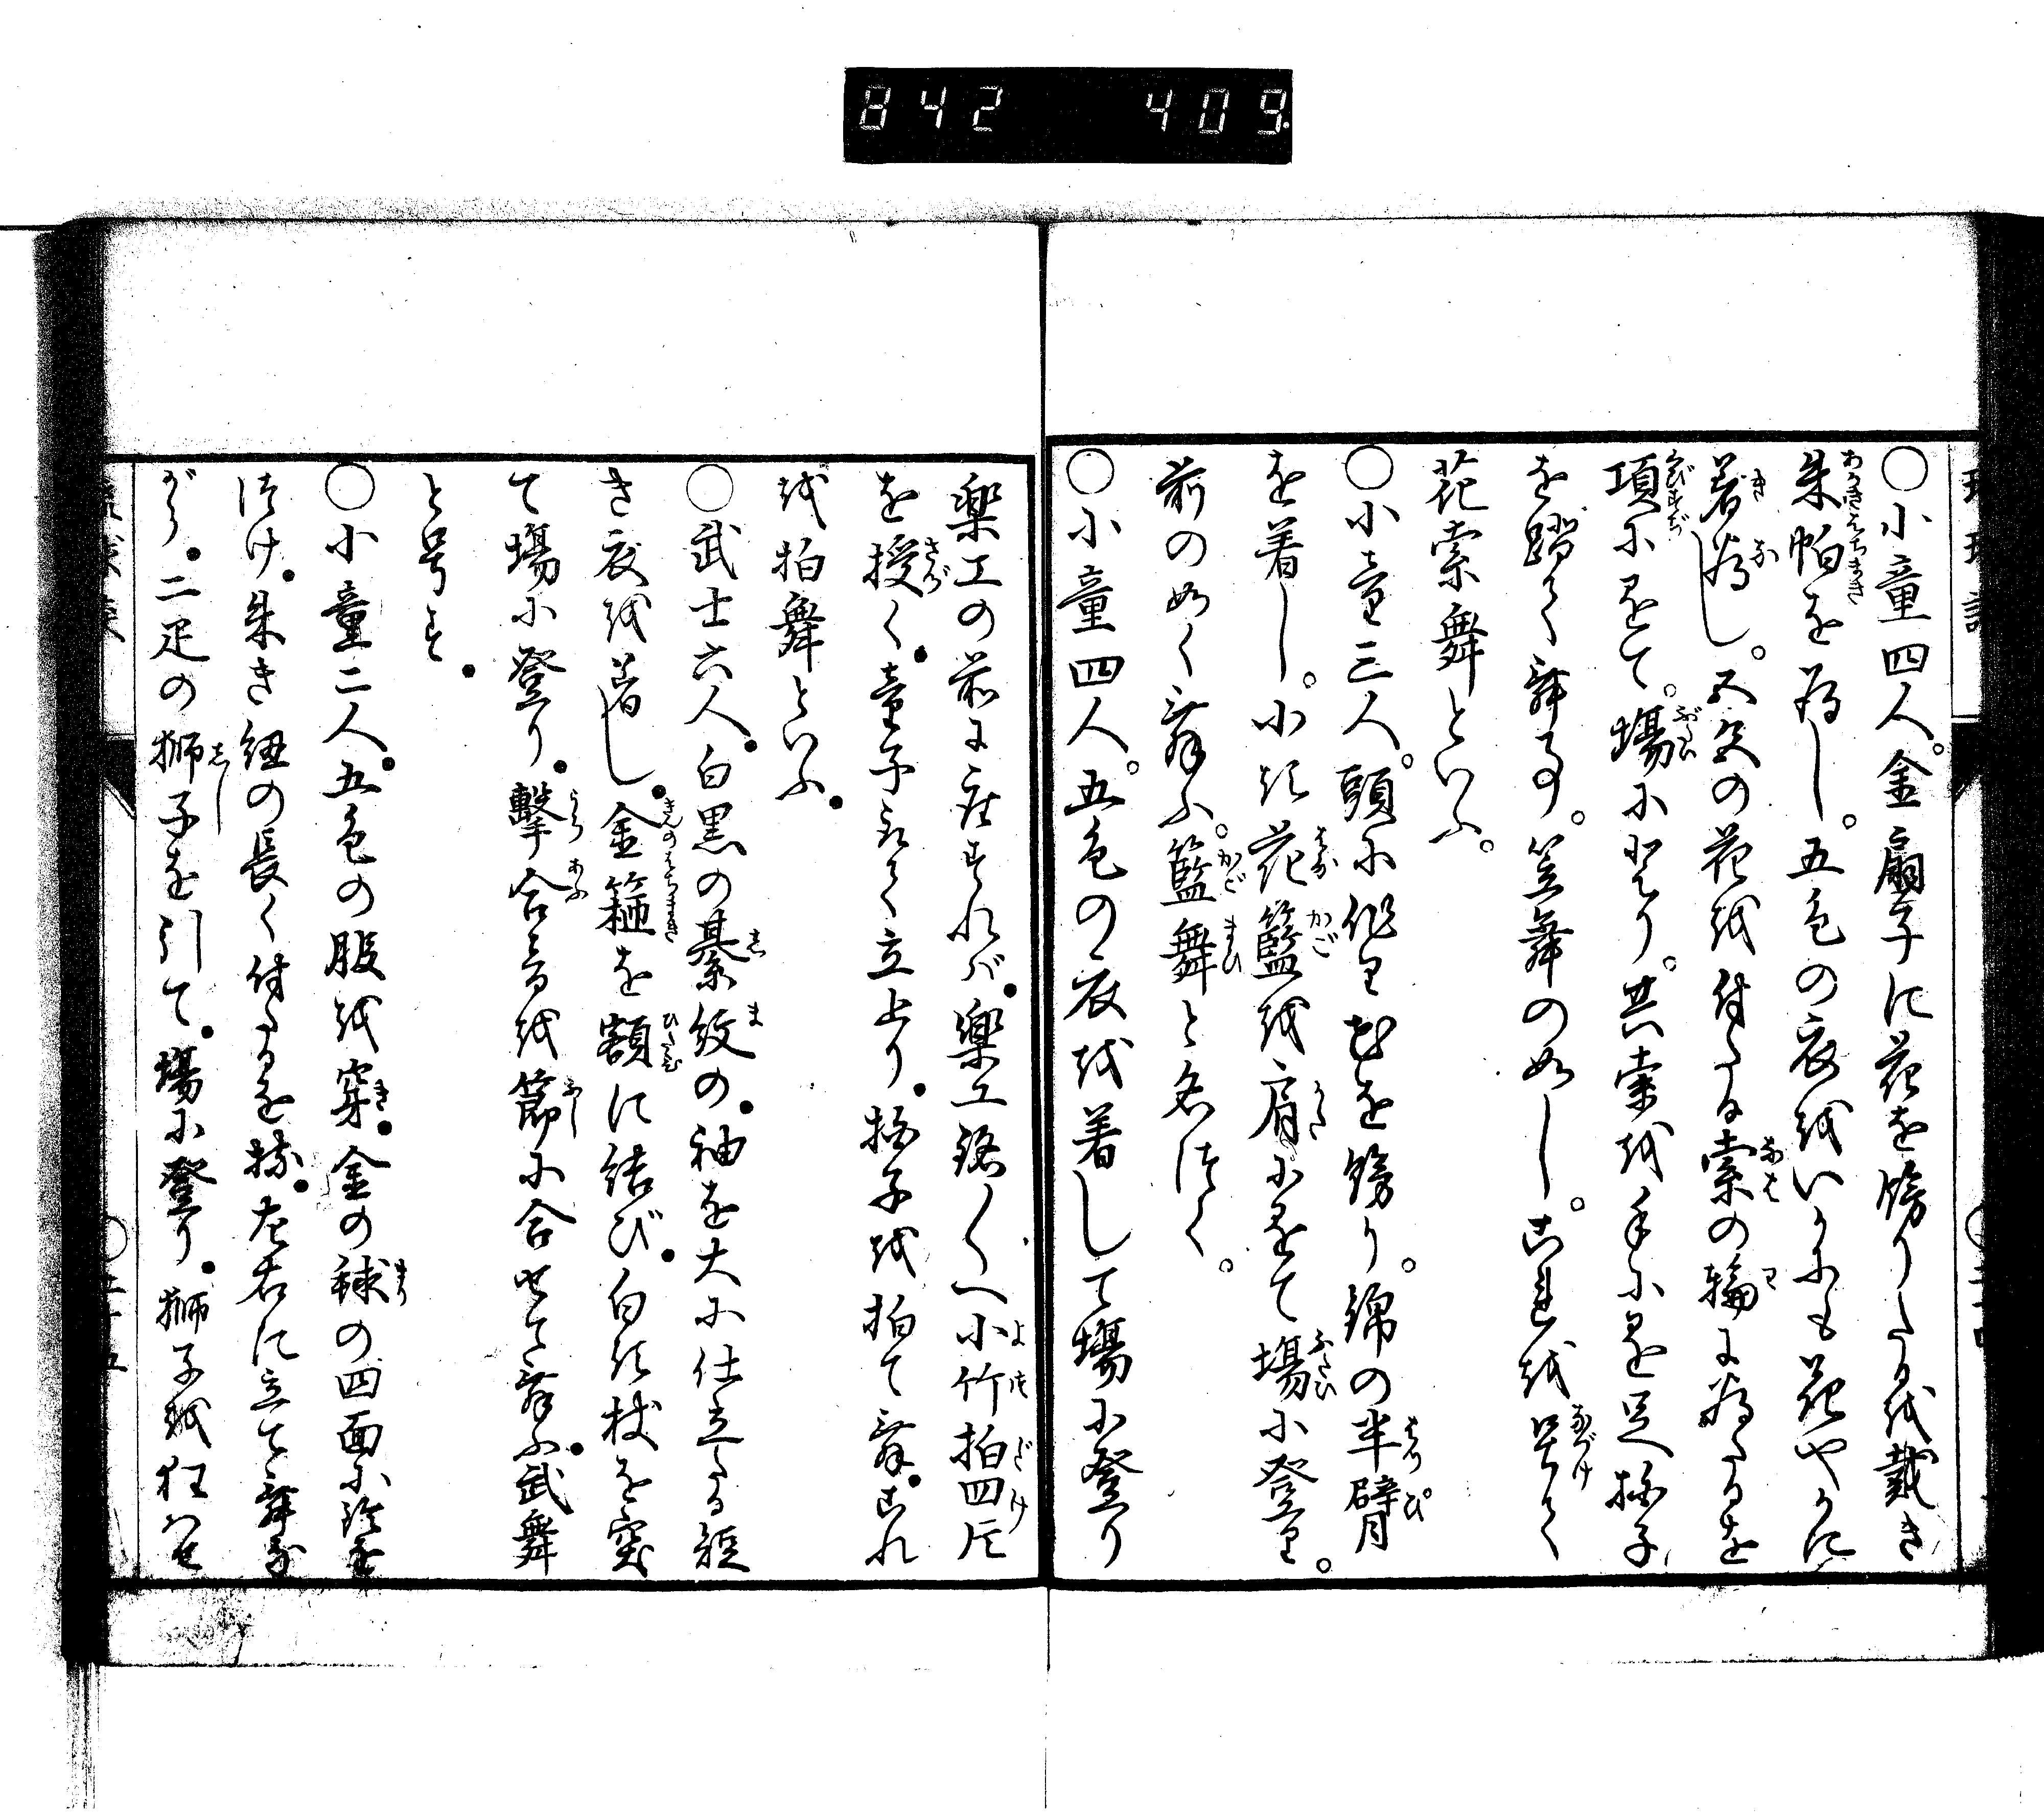 842 409
○小童四人。金扇子に花を飾りたるを戴き
朱帕を為し。五色の衣をいかにも花やかに
着為し。五色の花を付たる索の輪に為たるを
項に懸て。場に登り。其索を手に取足拍子
を踏て舞事。笠舞のごとし。これを号て
花索舞といふ。
○小童三人。頭に作り花を飾り。錦の半臂
を着し。小き花籃を肩に懸て場に登り。
前の如く舞ふ。籃舞と名付く。
○小童四人。五色の衣を着して場に登り
楽工の前に座すれば。楽工銘〱へ小竹拍四片
を授く。童子取て立上り。拍子を拍て舞。これ
を拍舞といふ。
○武士六人。白黒の綦紋の。袖を大に仕立たる短
き衣を着し。金箍を額に結び。白き杖を突
て場に登り。撃合音を節に合せて舞ふ。武舞
と号す。
○小童二人。五色の服を穿。金の毬の四面に鈴を
つけ。朱き紐の長く付たるを持。左右に立て舞な
がら。二疋の獅子を引て。場に登り。獅子を狂はせ